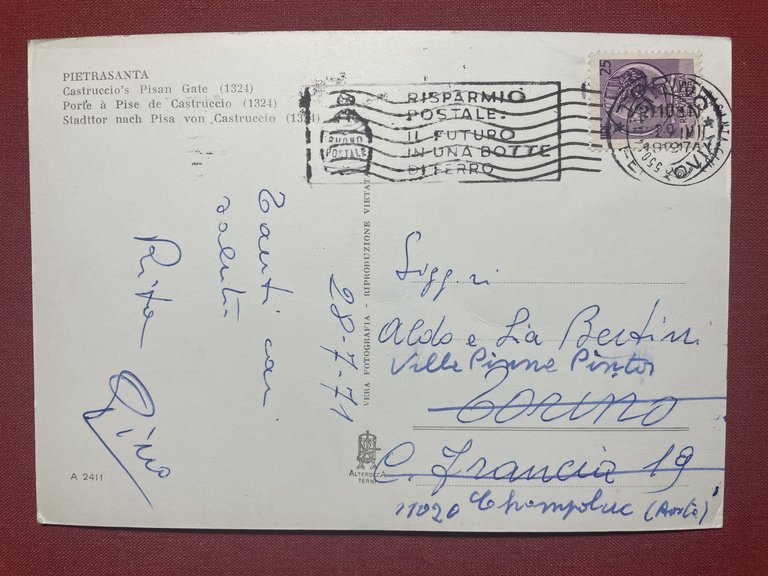 PIETRASANTA
Castruccio's Pisan Gate (1324)
Porte à Pise de Castruccio (1324)
Stadttor nach Pisa von Castruccio (13
25
RISPARMIO
POSTALE:
IL FUTURO
IN UNA BOTTE
DI FERRO
BUONO
POSTALE
Tanti cari
saluti
Rita
Gino
28-7-71
VERA FOTOGRAFIA - RIPRODUZIONE VIETATA
Sigg.ri
Aldo e Lia Bertini
Ville Pinne Pintor
Torino
C. Francia 19
11020 Champoluc (Aosta)
ALTEROCCA
TERNI
A 2411